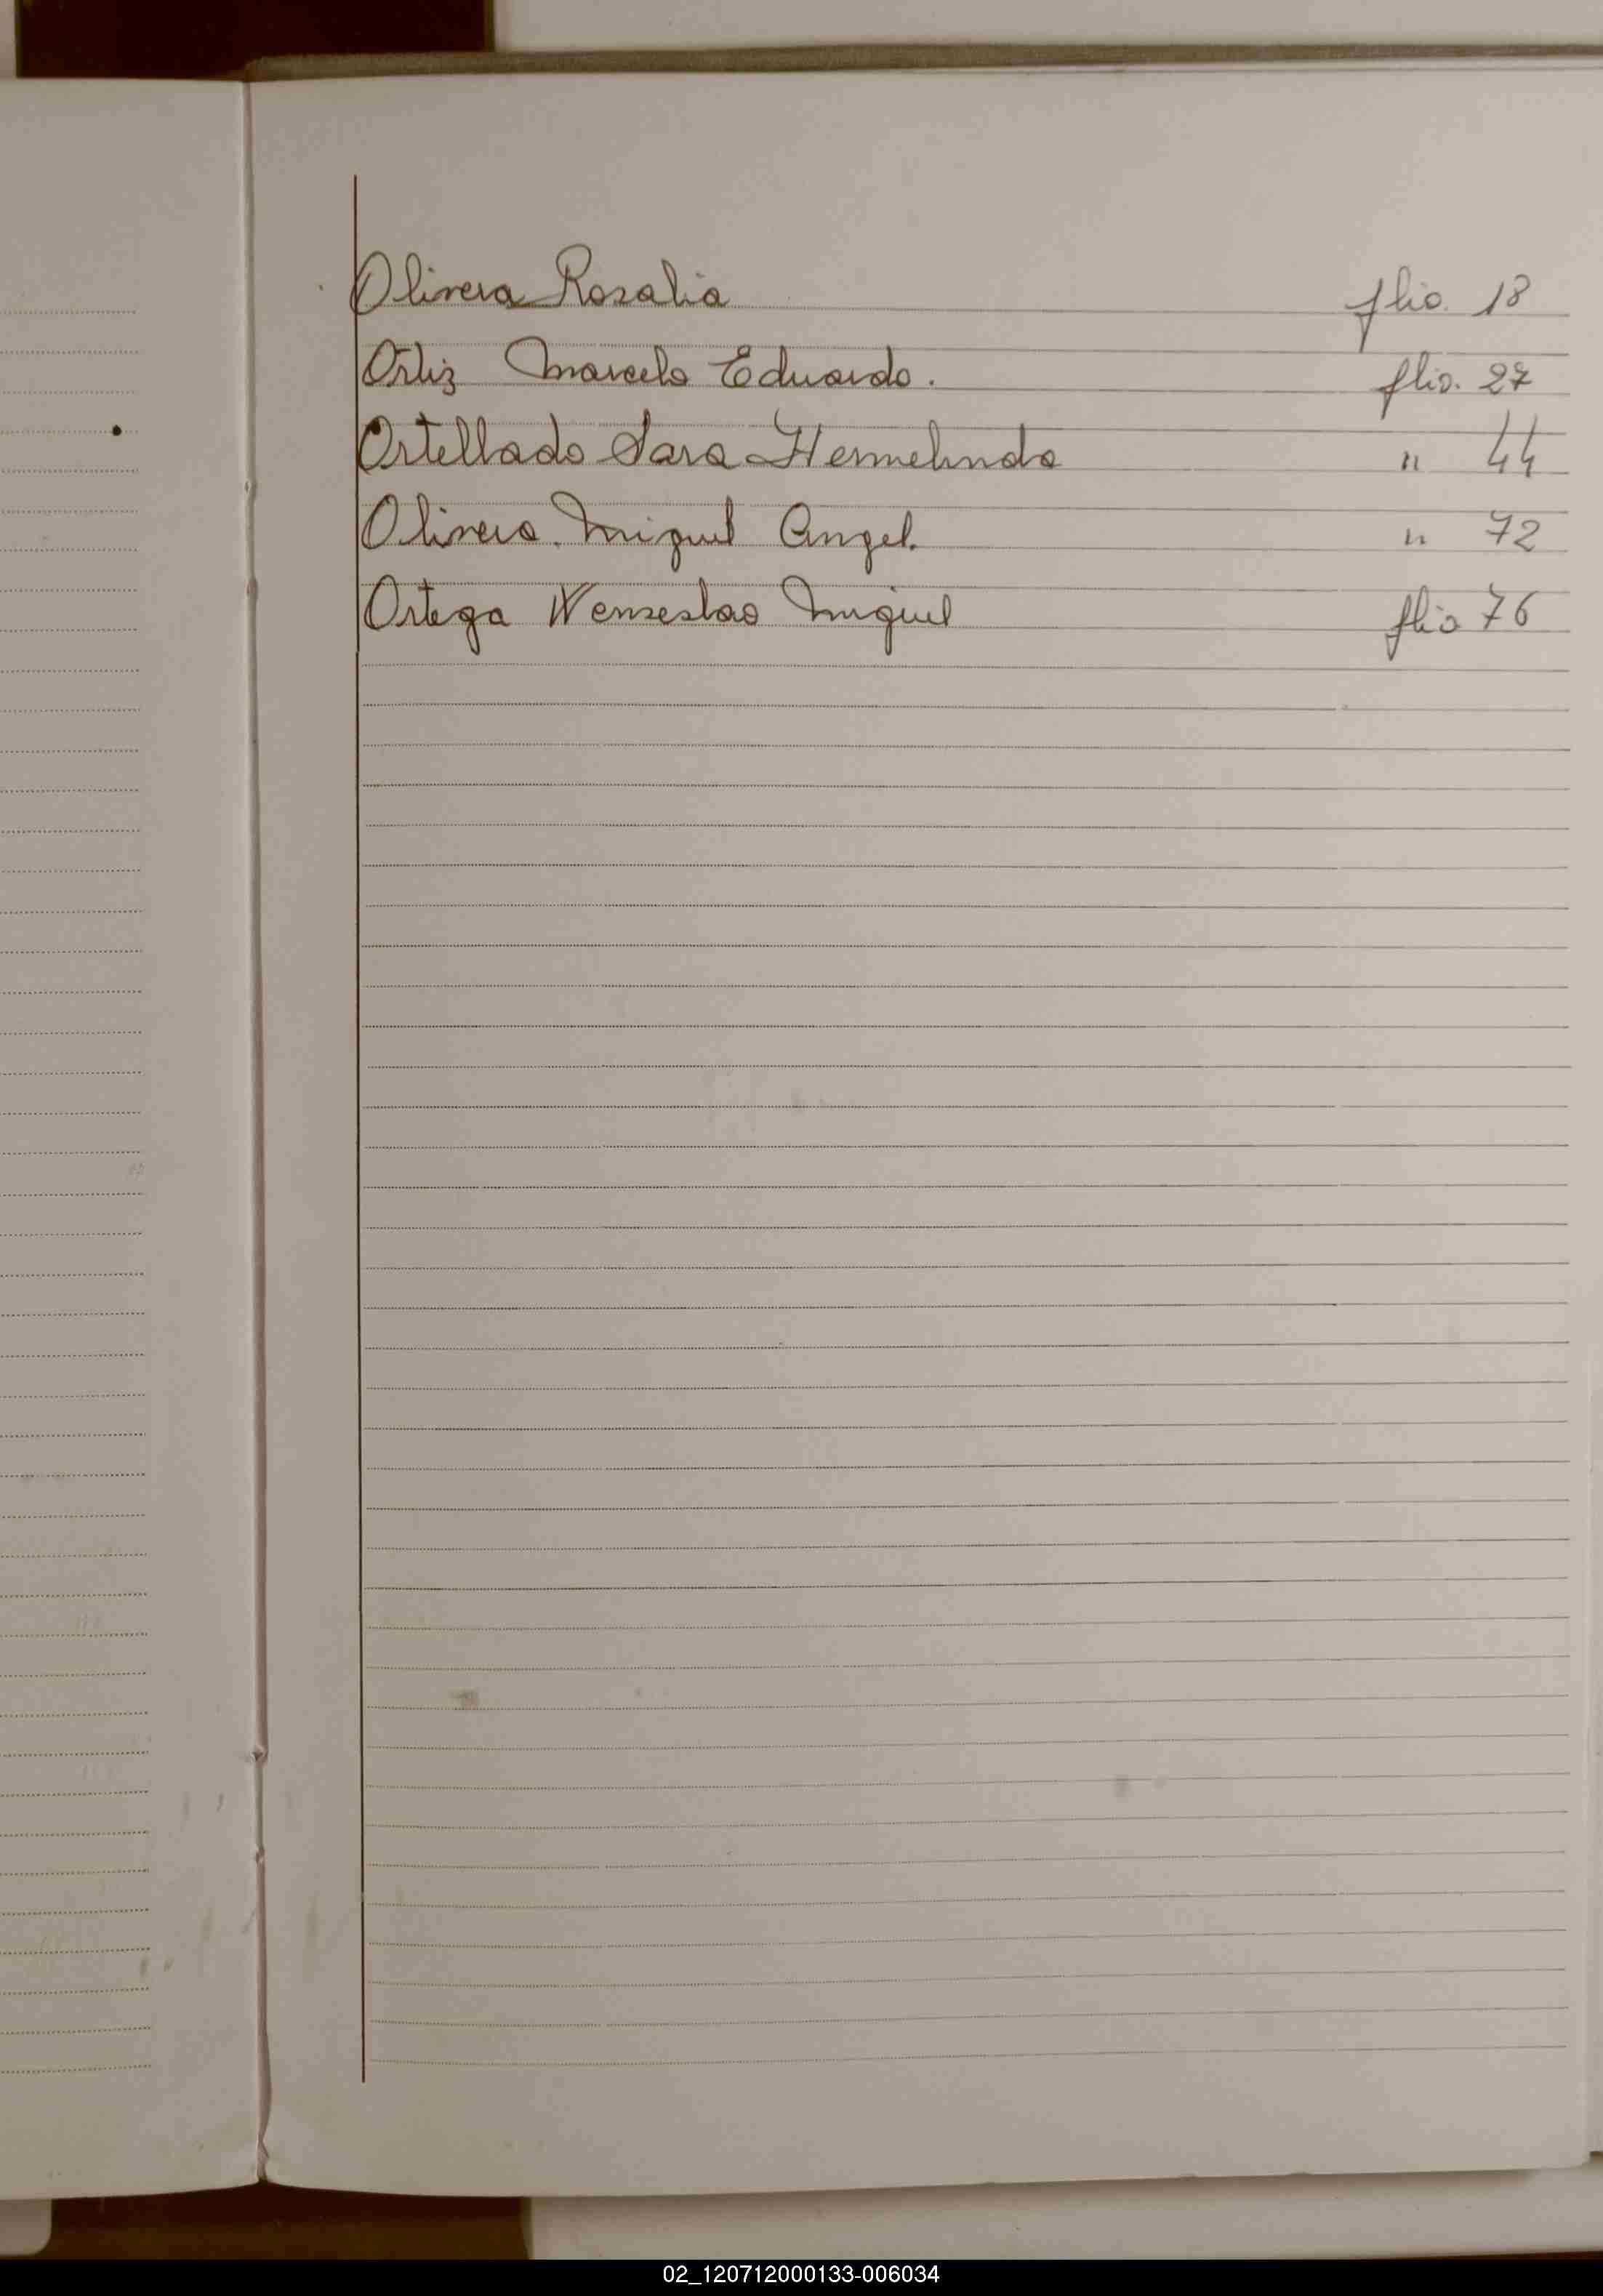 Olivera Rosalia flio. 18
Ortiz Marcelo Eduardo. flio. 27
Ortellado Sara Hermelinda " 44
Olivera Miguel Angel. " 72
Ortega Wenseslao Miguel flio 76
02_120712000133-006034